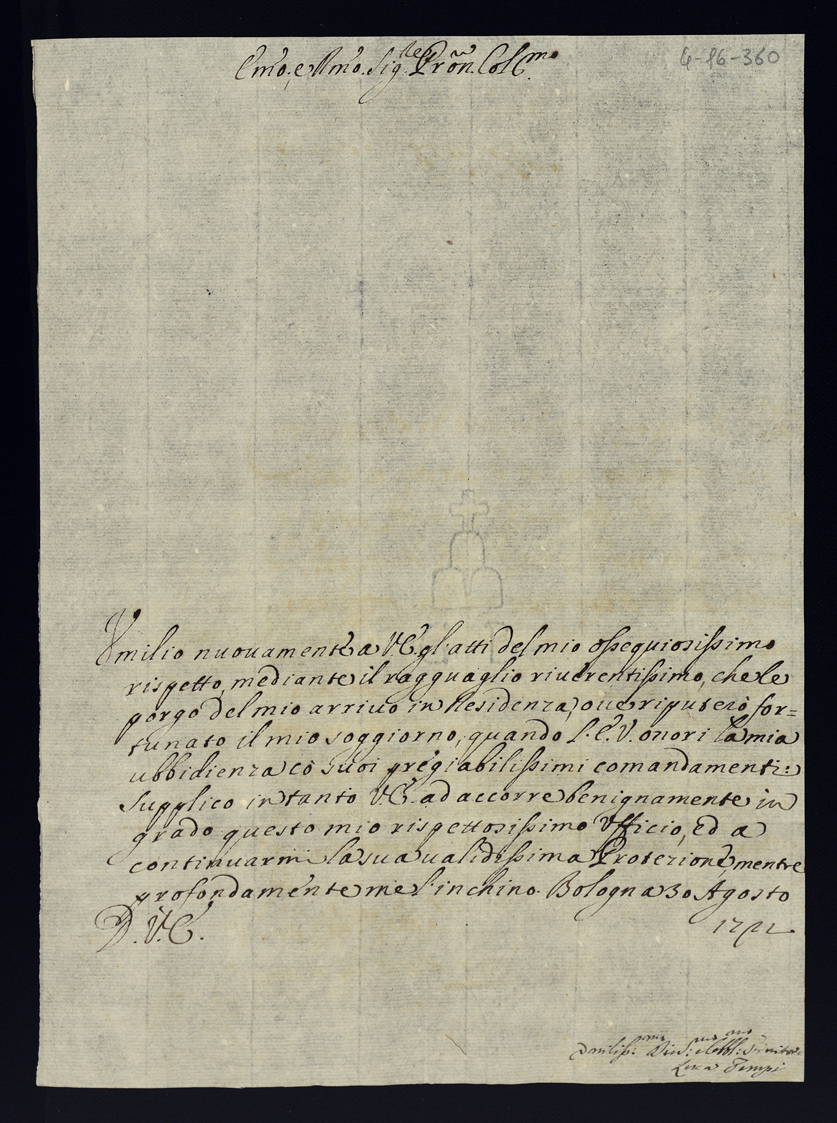 Emo, e Rmo. Sig.re Pron. Col.mo
6-86-360
Vmilio nuouamente a V.E. gl'atti del mio ossequiosissimo
rispetto, mediante il ragguaglio riuerentissimo, che le
porgo del mio arriuo in Residenza, oue riputerò for=
tunato il mio soggiorno, quando l'E.V. onori la mia
ubbidienza co suoi pregiabilissimi comandamenti:
Supplico intanto V.E. ad accorre benignamente in
grado questo mio rispettosissimo Vfficio, ed a
continuarmi la sua ualidissima Protezione, mentre
profondamente me l'inchino. Bologna 30 Agosto
D. V.E.
Luca Tempi